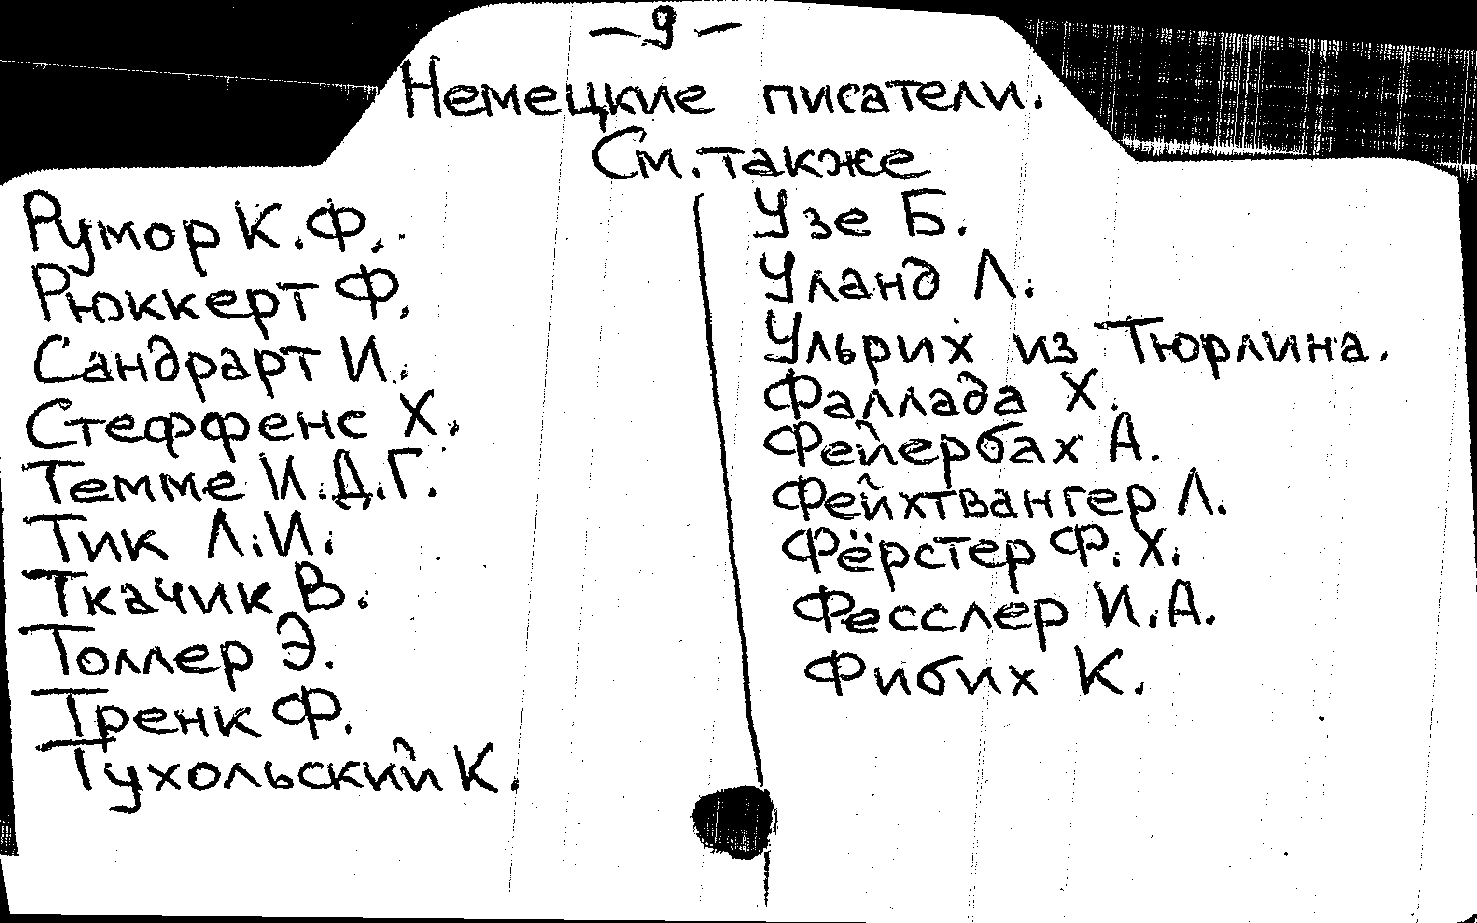 — 9 —
Немецкие писатели.
См. также
Румор К.Ф.
Рюккерт Ф.
Сандрарт И.
Стеффенс Х.
Темме И.Д.Г.
Тик Л.И.
Ткачик В.
Толлер Э.
Тренк Ф.
Тухольский К.
Узе Б.
Уланд Л.
Ульрих из Тюрлина.
Фаллада Х.
Фейербах А.
Фейхтвангер Л.
Фёрстер Ф.Х.
Фесслер И.А.
Фибих К.